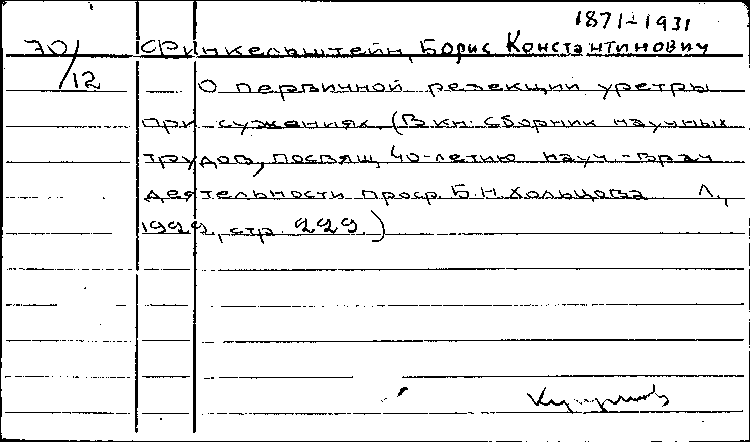 1871-1931
70/12 Финкельштейн, Борис Константинович
О первичной резекции уретры
при сужениях. (В кн: Сборник научных
трудов, посвящ. 40-летию науч-врач
деятельности проф. Б.Н. Хольцова Л.,
1929, стр. 229.)